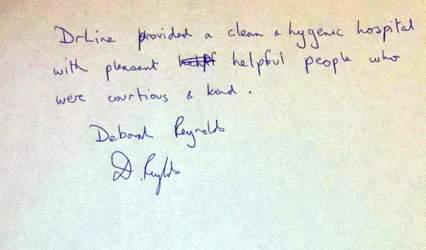 DrLine provided a clean & hygenic hospital
with pleasent helpful people who
were courtious & kind.
Deborah Reynolds
D. Reynolds